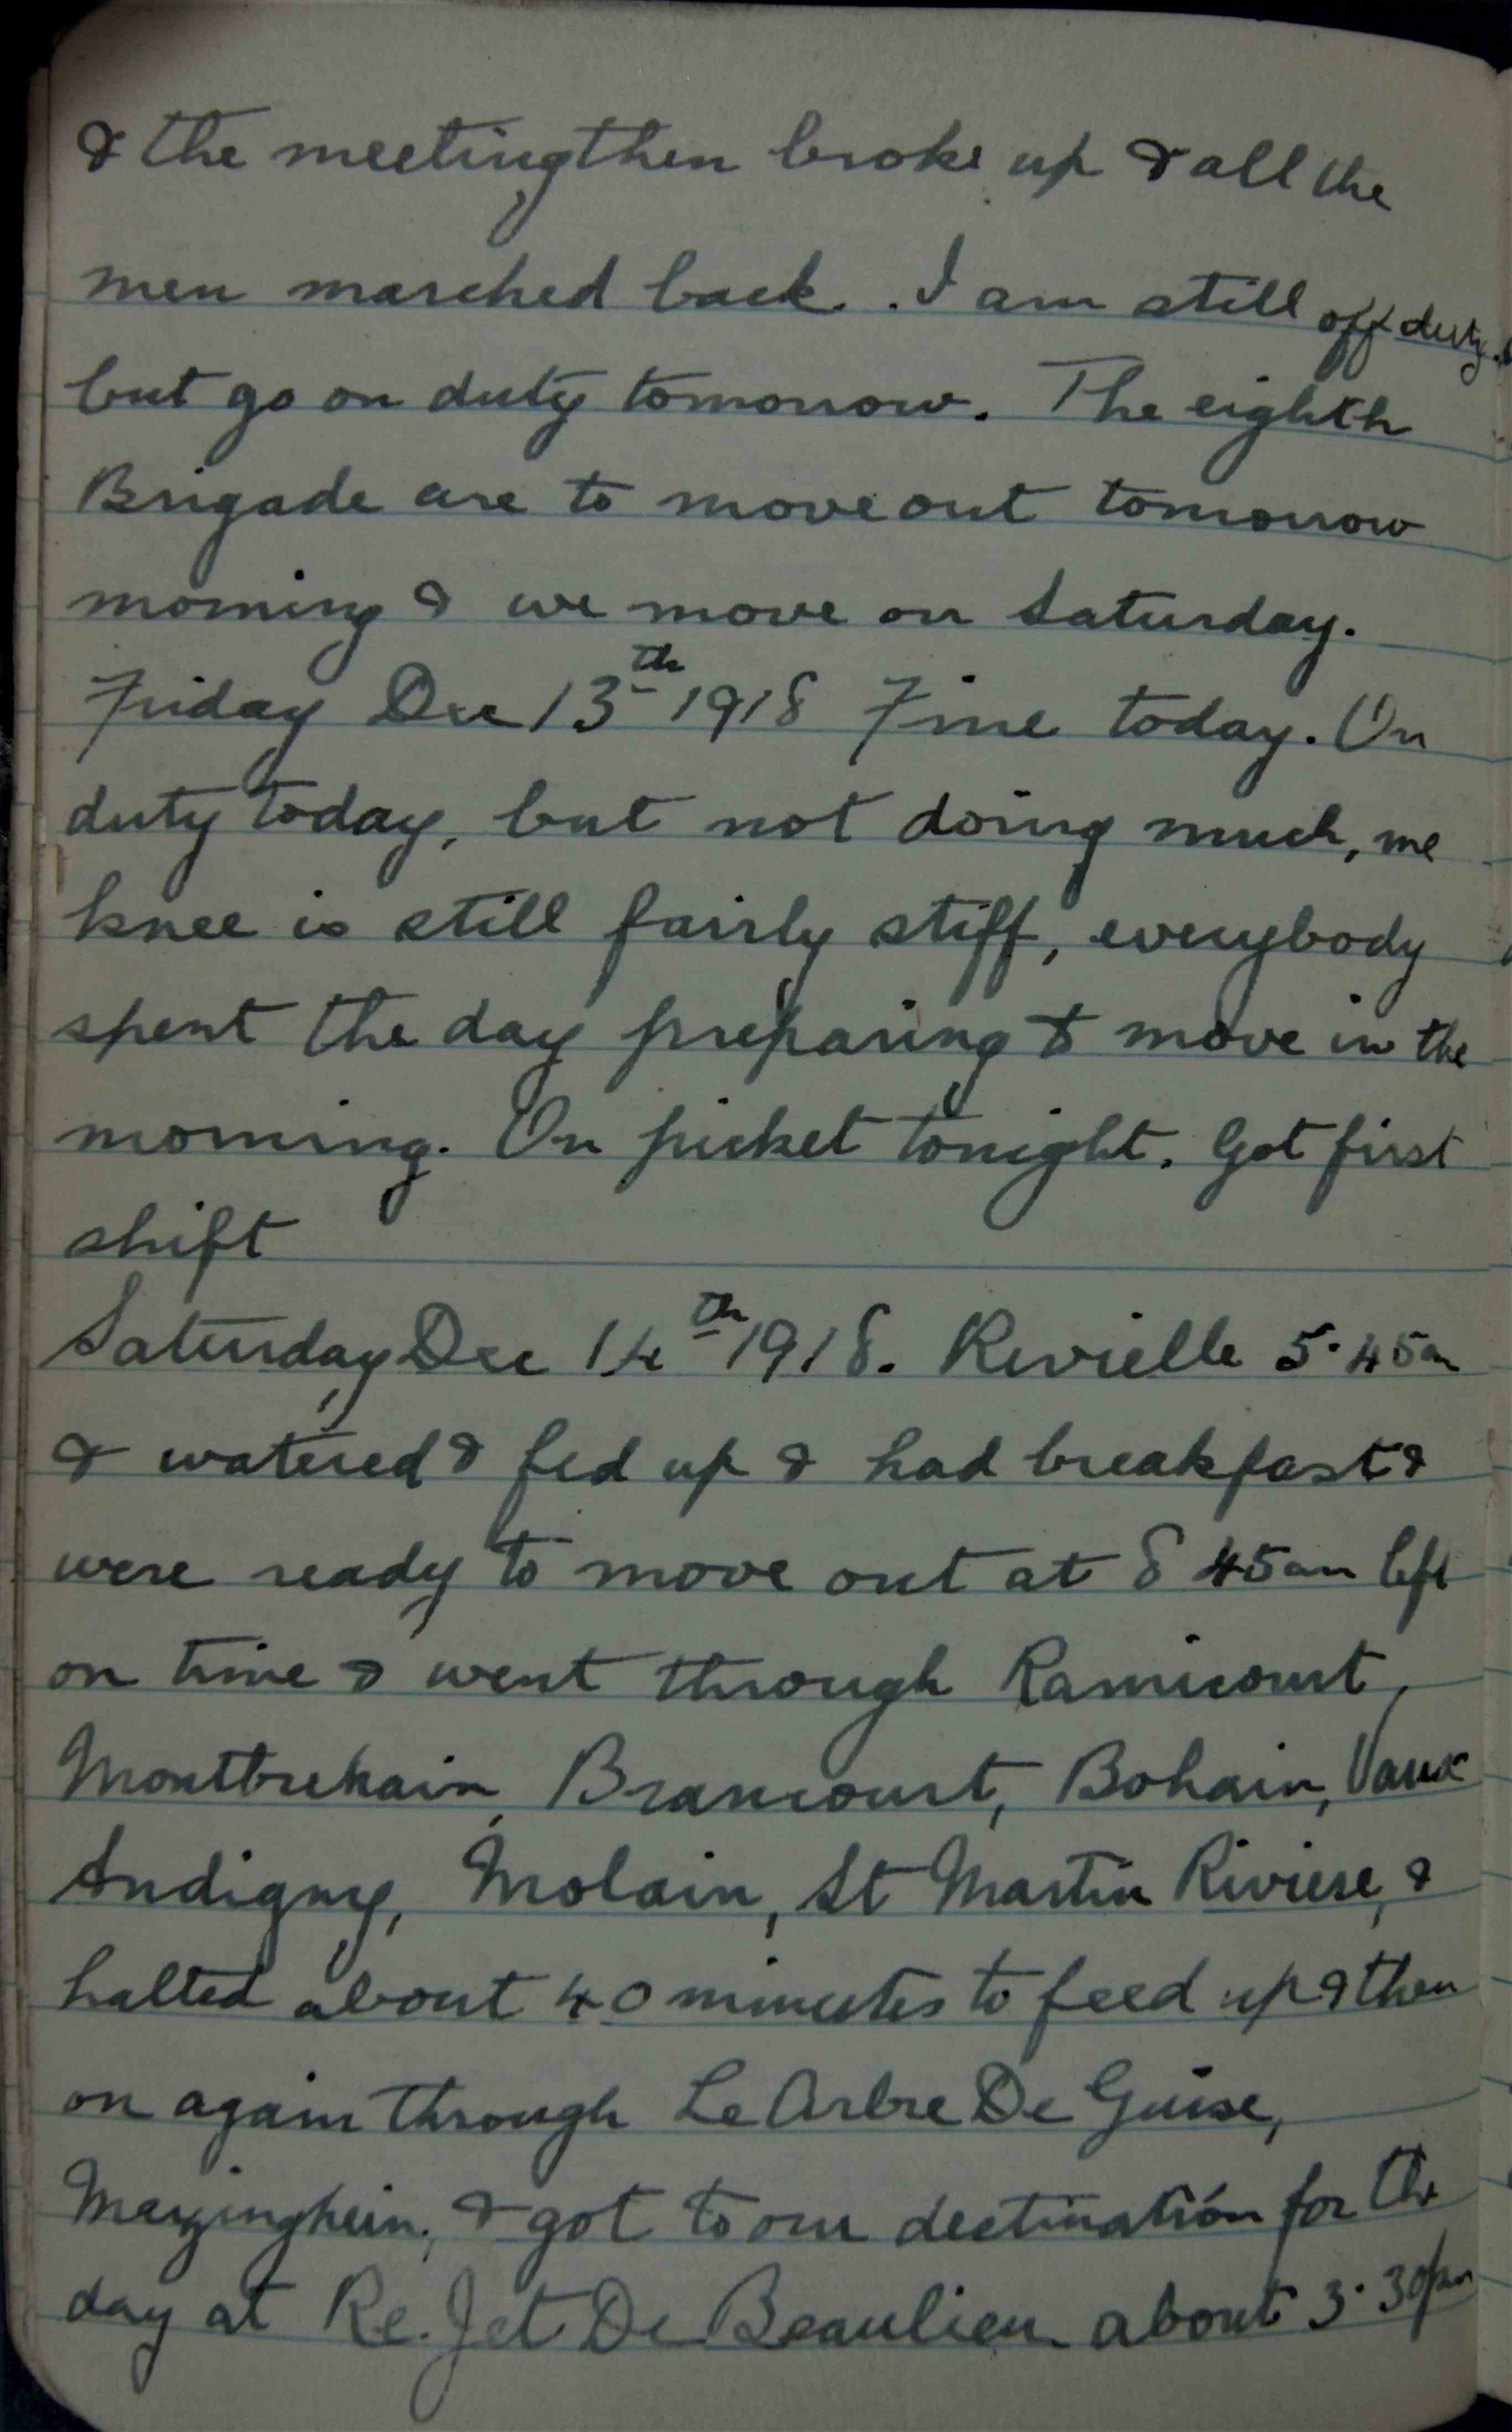 & the meeting then broke up & all the
men marched back. I am still off duty.
but go on duty tomorrow. The eighth
Brigade are to move out tomorrow
morning & we move on Saturday.
Friday Dec 13th 1918 Fine today. On
duty today, but not doing much, me
knee is still fairly stiff, everybody
spent the day preparing to move in the
morning. On picket tonight. Got first
shift
Saturday Dec 14th 1918. Revielle 5.45am
& watered & fed up & had breakfast &
were ready to move out at 8 45am left
on time & went through Ramicourt,
Montbrehain, Brancourt, Bohain, Vaux
Andigny, Molain, St Martin Riviere, &
halted about 40 minutes to feed up & then
on again through Le Arbre De Guise,
Mezinghein, & got to our destination for the
day at Re. Jet De Beaulieu about 3.30pm